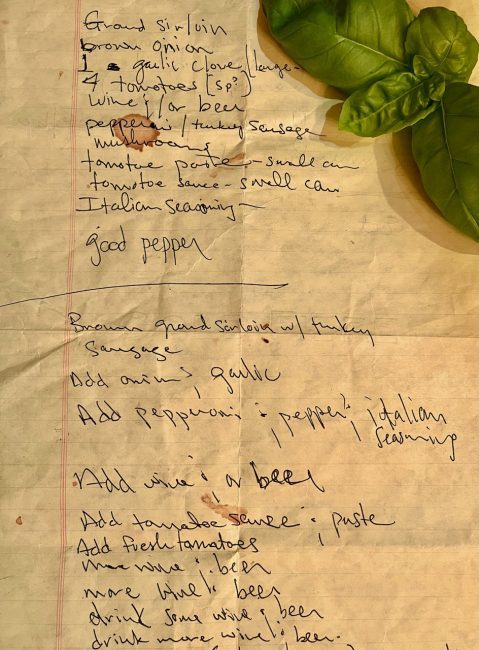 Grand sirloin
brown onion
1 garlic clove/large-
4 tomatoes [sp?]
wine &/or beer
pepperoni/turkey sausage
mushrooms
tomatoe paste - small can
tomatoe sauce - small can
Italian seasoning -
good pepper
Brown grand sirloin w/ turkey
sausage
Add onions, garlic
Add pepperoni & pepper & italian
seasoning
Add wine & or beer
Add tomatoe sauce & paste
Add fresh tomatoes
more wine & beer
more wine & beer
drink some wine & beer
drink more wine & beer.